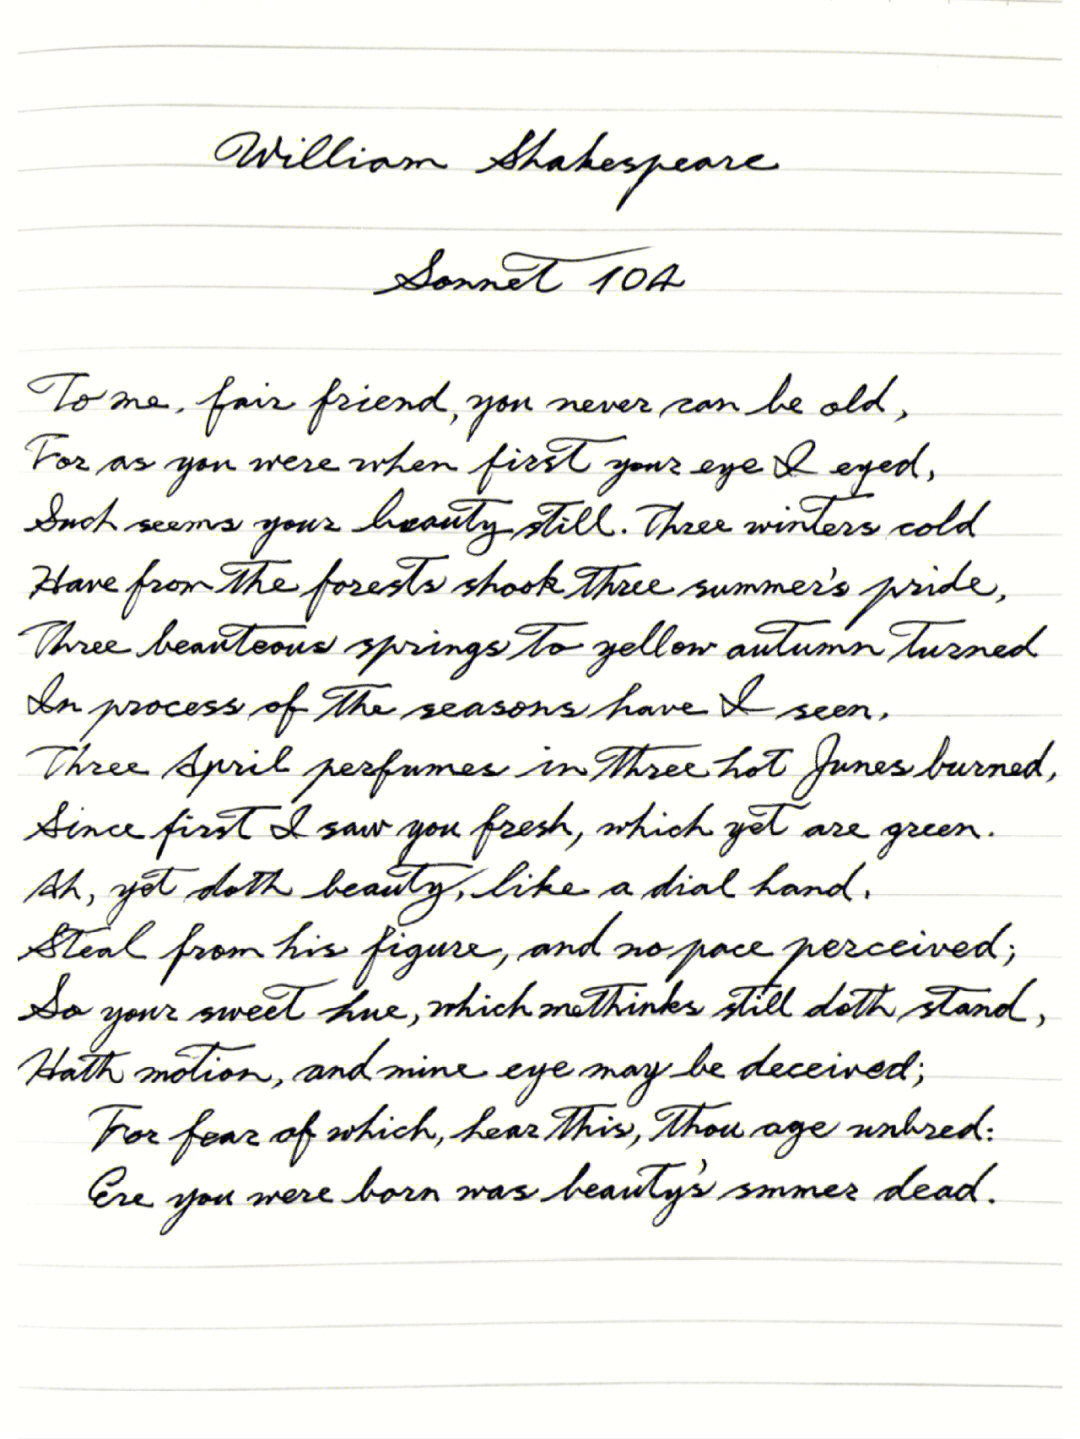 William Shakespeare
Sonnet 104
To me, fair friend, you never can be old,
For as you were when first your eye I eyed,
Such seems your beauty still. Three winters cold
Have from the forests shook three summer's pride,
Three beauteous springs to yellow autumn turned
In process of the seasons have I seen,
Three April perfumes in three hot Junes burned,
Since first I saw you fresh, which yet are green.
Ah, yet doth beauty, like a dial hand,
Steal from his figure, and no pace perceived;
So your sweet hue, which methinks still doth stand,
Hath motion, and mine eye may be deceived;
For fear of which, hear this, thou age unbred:
Ere you were born was beauty's smmer dead.